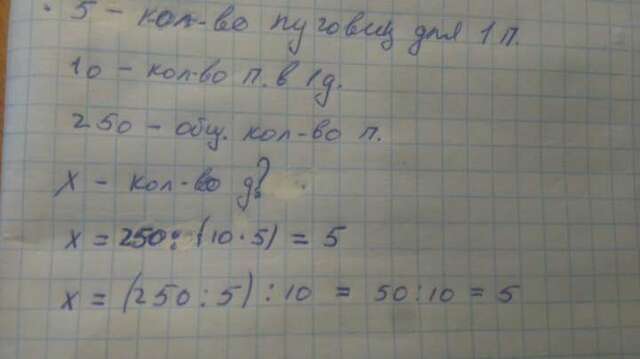 5 - кол-во пуговиц для 1 п.
10 - кол-во п. в 1 д.
250 - общ. кол-во п.
x - кол-во д?
x = 250 : (10 · 5) = 5
x = (250 : 5) : 10 = 50 : 10 = 5